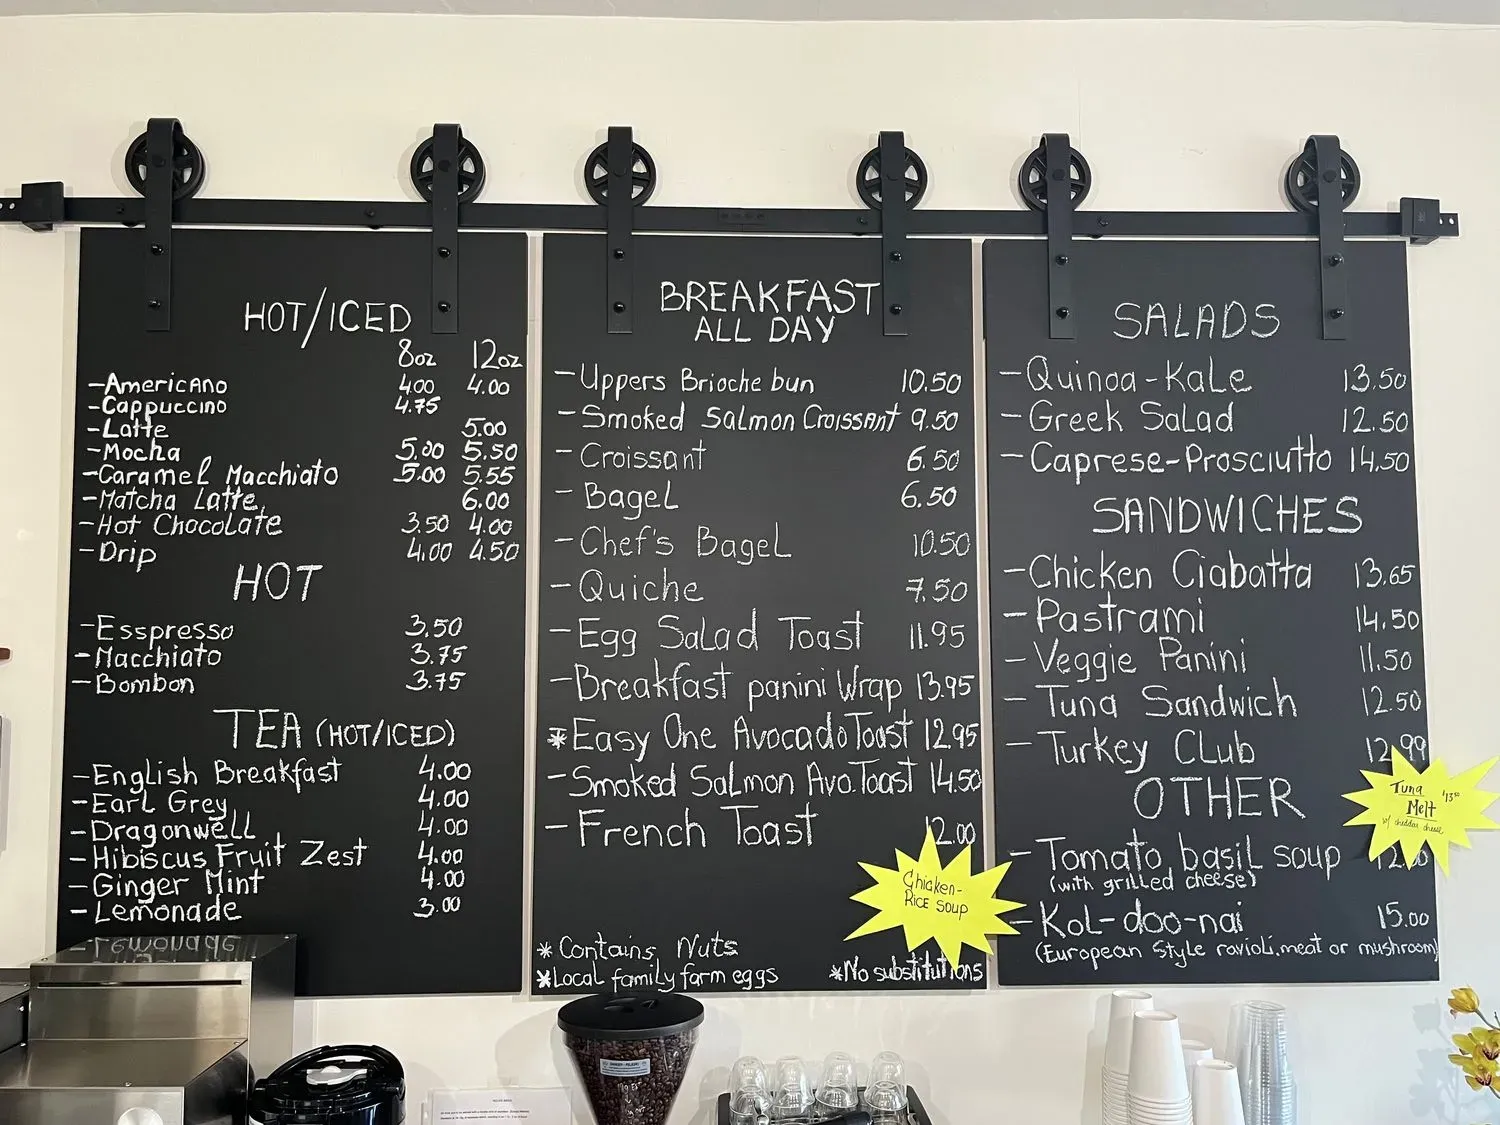 HOT/ICED
8oz 12oz
-Americano 4.00 4.00
-Cappuccino 4.75
-Latte 5.00
-Mocha 5.00 5.50
-Caramel Macchiato 5.00 5.55
-Matcha Latte 6.00
-Hot Chocolate 3.50 4.00
-Drip 4.00 4.50
HOT
-Esspresso 3.50
-Macchiato 3.75
-Bombon 3.75
TEA (HOT/ICED)
-English Breakfast 4.00
-Earl Grey 4.00
-Dragonwell 4.00
-Hibiscus Fruit Zest 4.00
-Ginger Mint 4.00
-Lemonade 3.00
BREAKFAST
ALL DAY
-Uppers Brioche bun 10.50
-Smoked Salmon Croissant 9.50
-Croissant 6.50
-Bagel 6.50
-Chef's Bagel 10.50
-Quiche 7.50
-Egg Salad Toast 11.95
-Breakfast panini Wrap 13.95
*Easy One Avocado Toast 12.95
-Smoked Salmon Avo.Toast 14.50
-French Toast 12.00
Chicken-
Rice soup
* Contains Nuts
*Local family farm eggs *No substitutions
SALADS
-Quinoa-Kale 13.50
-Greek Salad 12.50
-Caprese-Prosciutto 14.50
SANDWICHES
-Chicken Ciabatta 13.65
-Pastrami 14.50
-Veggie Panini 11.50
-Tuna Sandwich 12.50
-Turkey Club 12.99
OTHER
Tuna
Melt $13.50
w/ cheddar cheese
-Tomato basil soup
(with grilled cheese)
-Kol-doo-nai 15.00
(European Style ravioli, meat or mushroom)